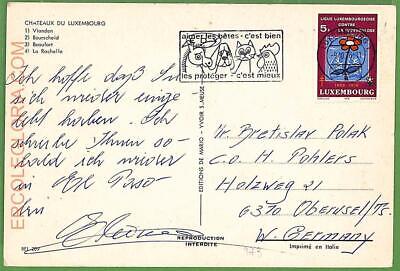 CHATEAUX DU LUXEMBOURG
1) Vianden
2) Bourscheid
3) Beaufort
4) La Rochette
Ich hoffe daß Sie
sich wieder einge
lebt haben. Ich
schreibe Ihnen so-
bald ich wieder
in El Paso
bin
BFL 209
REPRODUCTION
INTERDITE
EDITIONS DE MARIO - VUOIR S/MEUSE
aimer les bêtes - c'est bien
les protéger - c'est mieux
LIGUE LUXEMBOURGEOISE
CONTRE
LA TUBERCULOSE
5F
LUXEMBOURG
Mr Bretislav Polak
C.O. H. Pohlers
Holzweg 21
6370 Oberursel/Ts.
W. Germany
Imprimé en Italie
ERCOLEGLORIA.COM